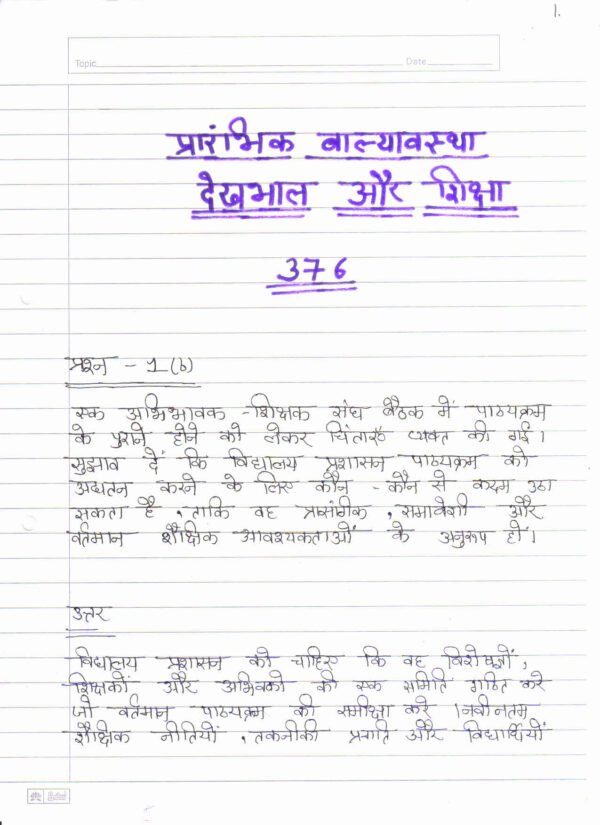 1.
Topic
Date
प्रारंभिक बाल्यावस्था
देखभाल और शिक्षा
376
प्रश्न - 1 (b)
एक अभिभावक - शिक्षक संघ बैठक में पाठ्यक्रम
के पुराने होने को लेकर चिंताएँ व्यक्त की गई।
सुझाव दें कि विद्यालय प्रशासन पाठ्यक्रम को
अद्यतन करने के लिए कौन - कौन से कदम उठा
सकता है, ताकि वह प्रासंगिक, समावेशी और
वर्तमान शैक्षिक आवश्यकताओं के अनुरूप हों।
उत्तर
विद्यालय प्रशासन को चाहिए कि वह विशेषज्ञों,
शिक्षकों और अभिवको की एक समिति गठित करे
जो वर्तमान पाठ्यक्रम की समीक्षा करे। नवीनतम
शैक्षिक नीतियों, तकनीकी प्रगति और विद्यार्थियों